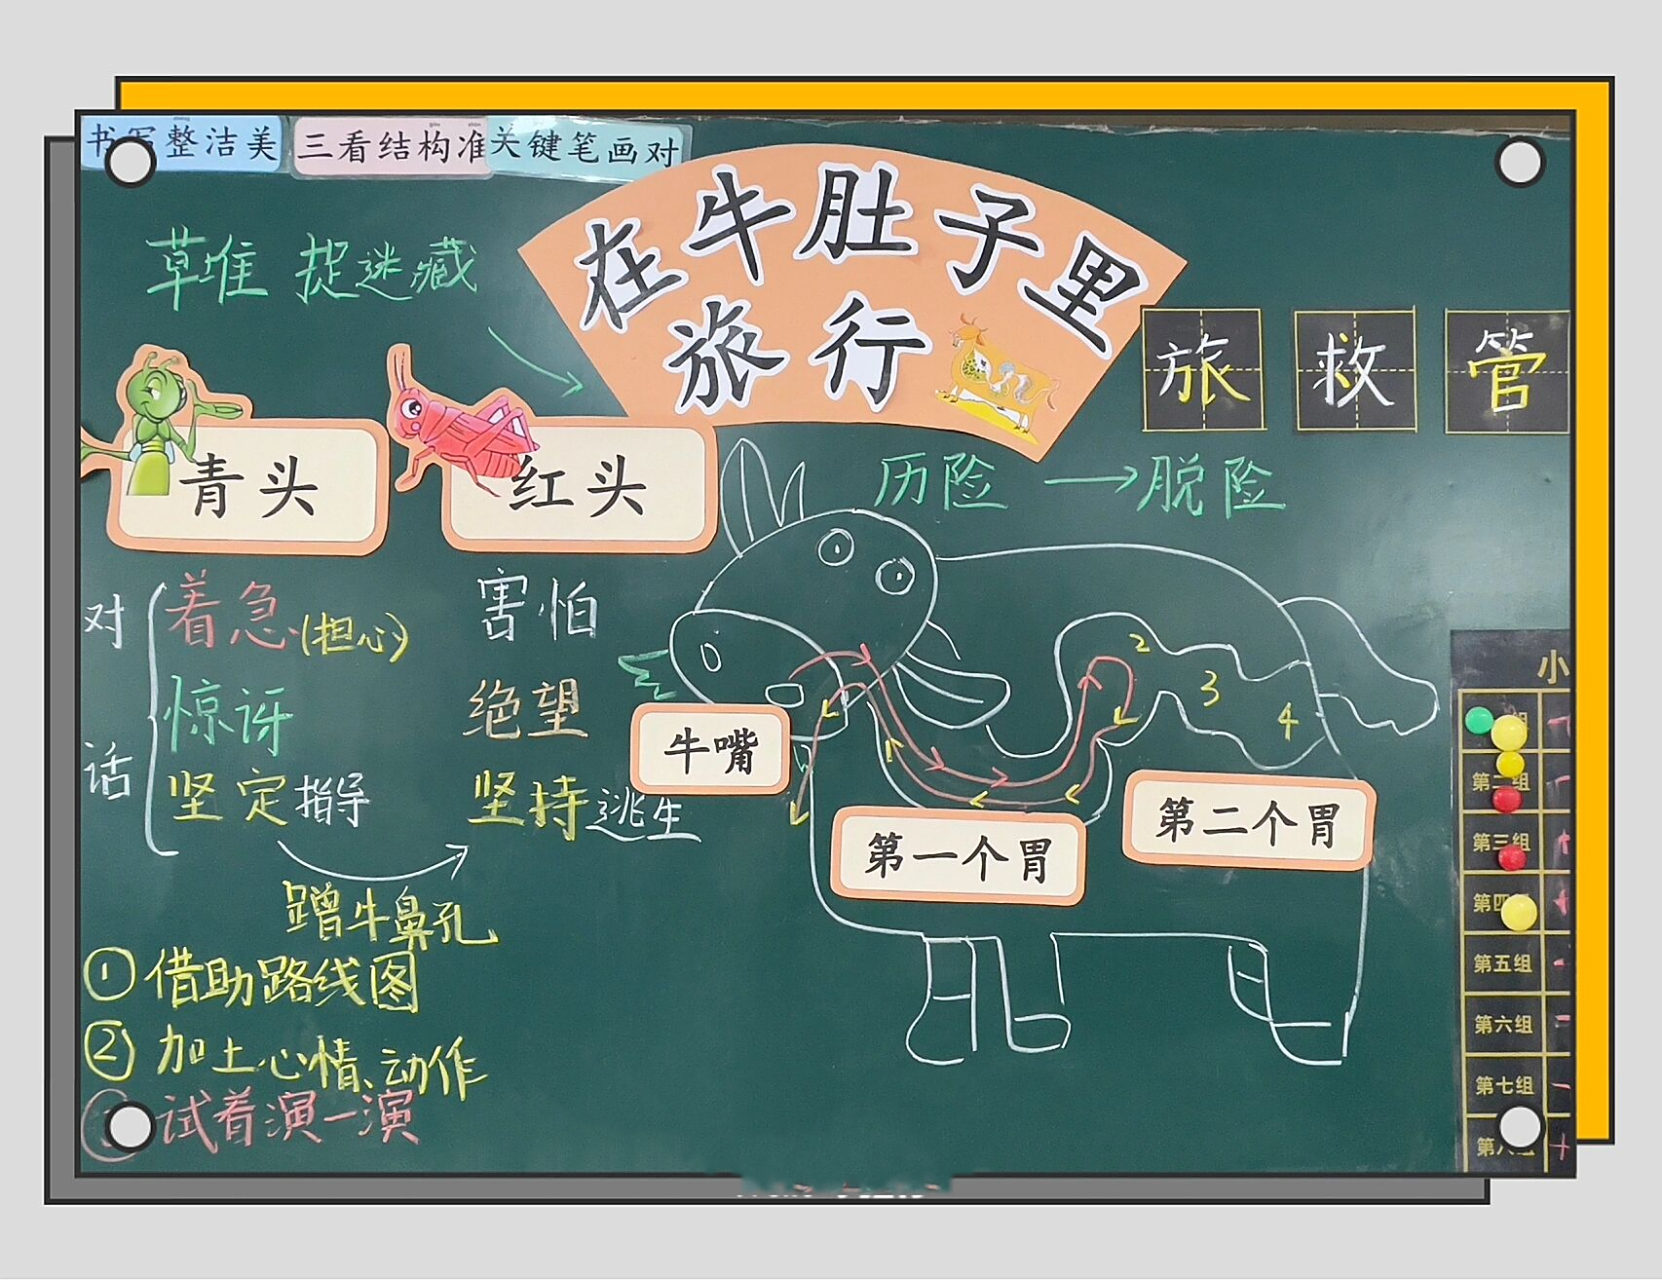 书写整洁美
三看结构准
关键笔画对
在牛肚子里
旅行
草堆 捉迷藏
旅 救 管
青头
红头
历险 → 脱险
对话
着急(担心)
害怕
惊讶
绝望
坚定指导
坚持逃生
蹭牛鼻孔
牛嘴
第一个胃
第二个胃
2
3
4
①借助路线图
②加上心情、动作
试着演一演
小
第二组
第三组
第四
第五组
第六组
第七组